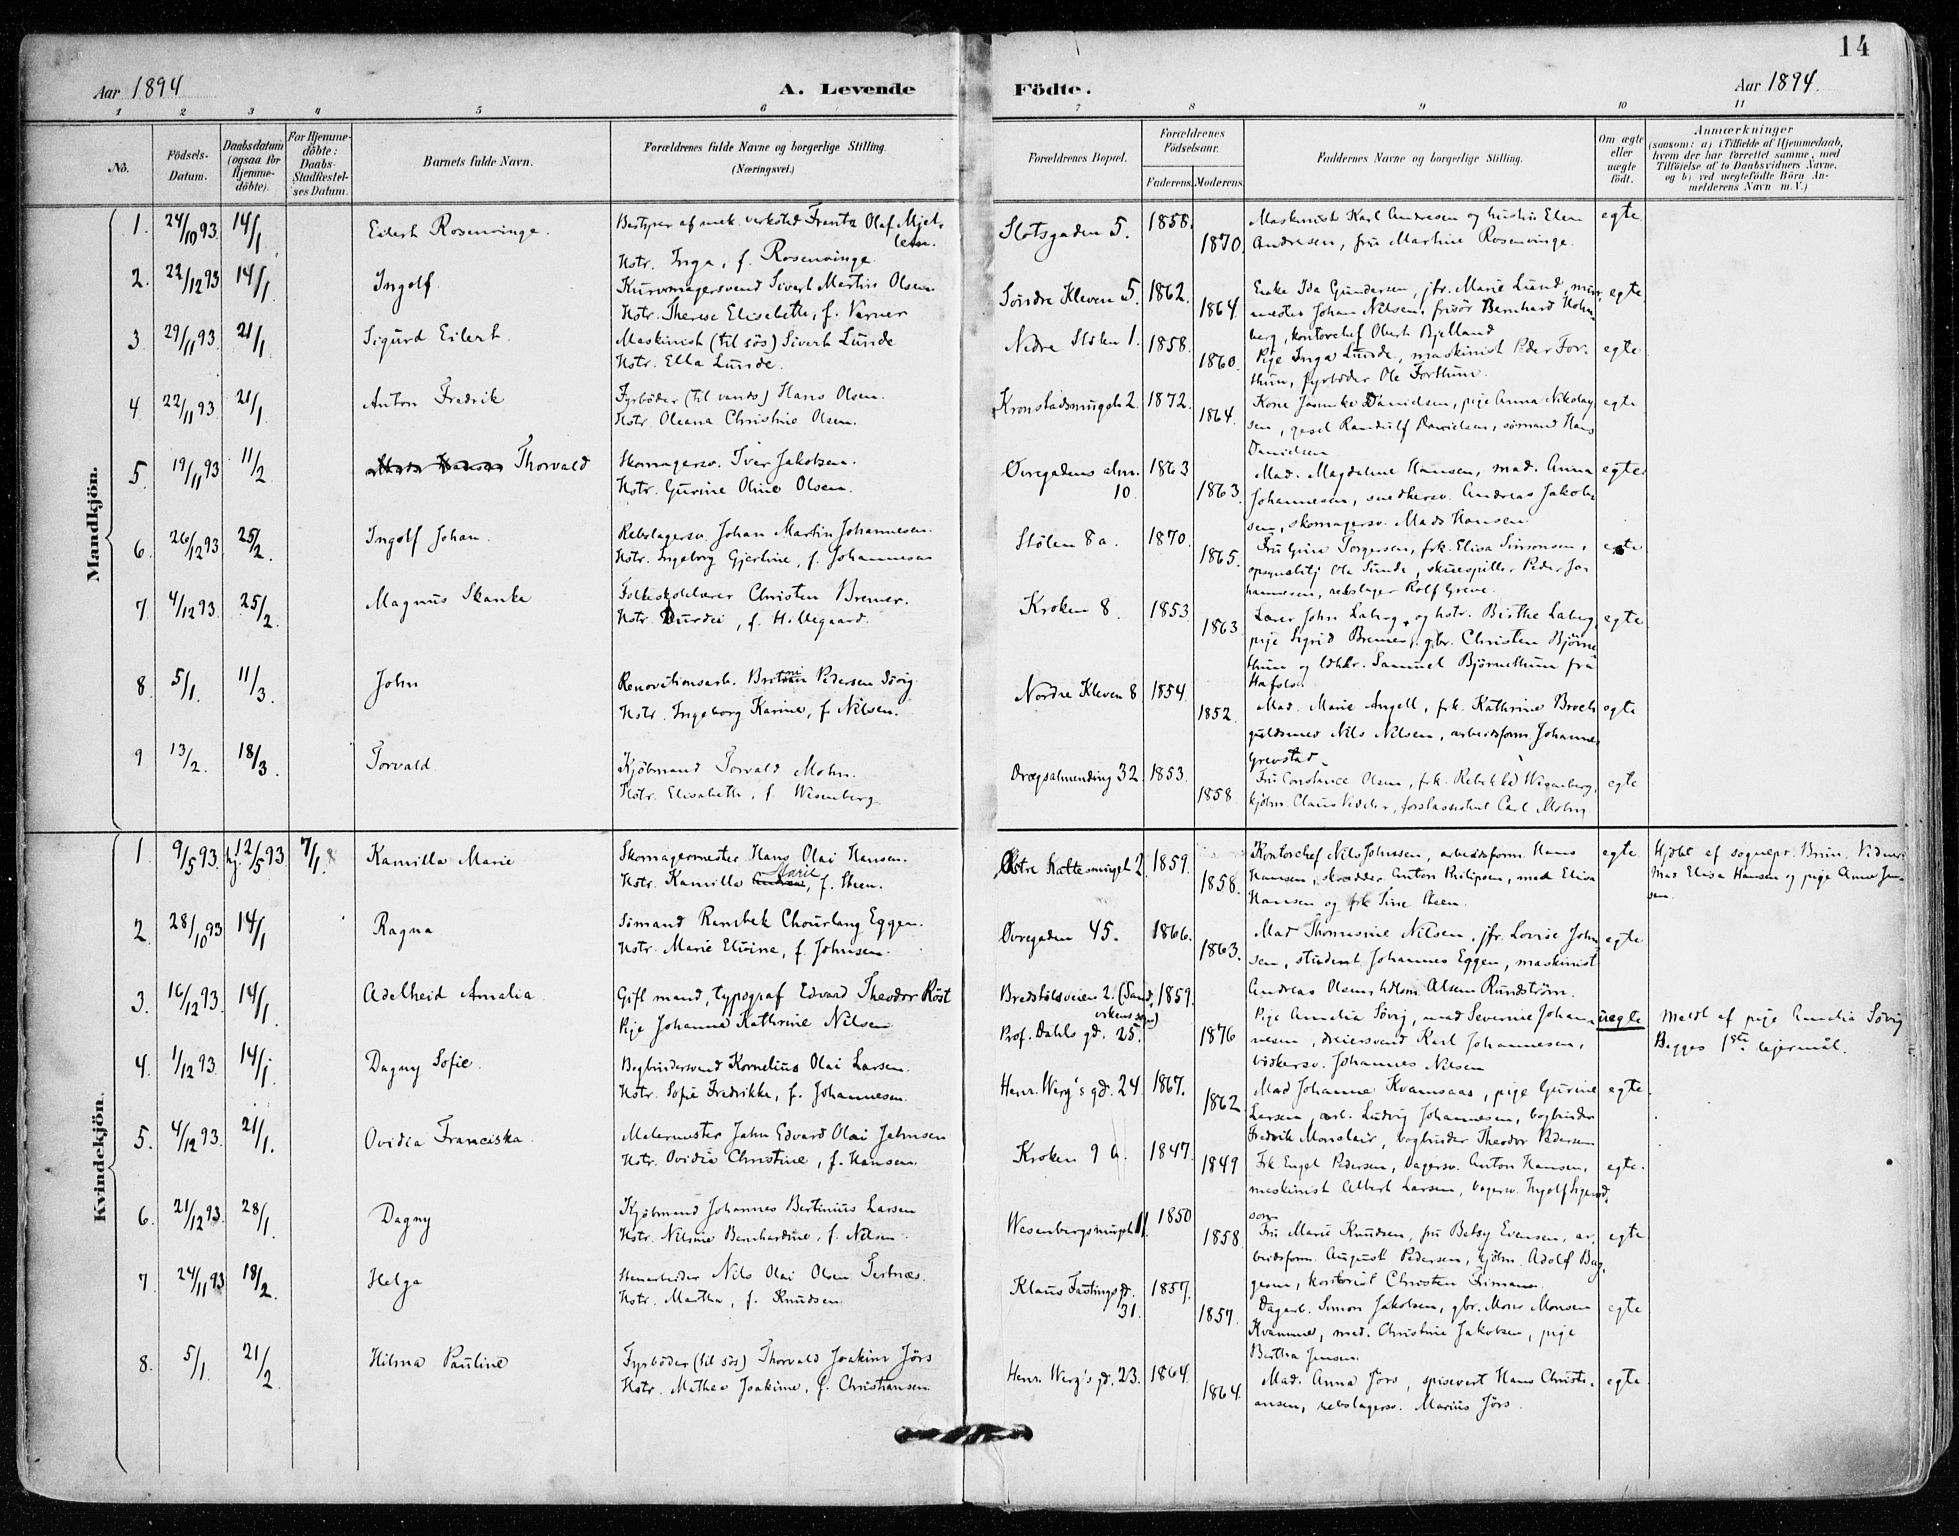 14
Aar 1894
A. Levende Födte.
Aar 1894.
1 2 3 4 5 6 7 8 9 10 11
No.
Födsels-Datum.
Daabsdatum (ogsaa for Hjemmedöbte).
For Hjemmedöbte: Daabs-Stadfæstelses Datum.
Barnets fulde Navn.
Forældrenes fulde Navne og borgerlige Stilling. (Næringsvei.)
Forældrenes Bopæl.
Forældrenes Födselsaar.
Faderens. Moderens.
Faddernes Navne og borgerlige Stilling.
Om ægte eller uægte födt.
Anmærkninger
(saasom: a) i Tilfælde af Hjemmedaab,
hvem der har forrettet samme, med
Tilföielse af to Daabsvidners Navne,
og b) ved uægtefödte Börn Anmelderens Navn m. V.)
Mandkjön.
1. 24/10 93 14/1 Eilert Rosenvinge. Bestyrer af mek. verksted Frantz Olaf Mjel-
Hstr. Inga, f. Rosenvinge. Slotsgaden 5. 1858. 1870. Maskinist Karl Andresen og hustru Elen
Andresen, fru Martine Rosenvinge. egte
2. 22/12 93 14/1 Ingolf. Kurvmagersvend Sivert Martin Olsen
Hstr. Therese Elisabeth, f. Verner Söndre Kleven 5. 1862. 1864. Enke Ida Gundersen, jfr. Marie Lund, mur-
mester Johan Nilsen, frisör Bernhard Holm-
berg, kontorchef Obert Bjelland egte
3. 29/11 93 21/1 Sigurd Eilert. Maskinist (til sös) Sivert Lunde
Hstr. Ella Lunde. Nedre Stölen 1. 1858. 1860. Pige Inga Lunde, maskinist Peder For-
thun, fyrböder Ole Forthun. egte
4 22/11 93 21/1 Anton Fredrik Fyrböder (til vands) Hans Olsen.
Hstr. Oleana Christine Olsen. Kronstadsmuget 2. 1872. 1864. Kone Jannike Danielsen, pige Anna Nikolay-
sen, gesel Randulf Danielsen, sömand Hans
Danielsen egte
5. 19/11 93 11/2 Thorvald Skomagersv. Iver Jakobsen.
Hstr. Gurine Oline Olsen. Øvregadens alm. 10. 1863 1863. Mad. Magdeline Hansen, mad. Anna
Johannesen, snedkersv. Andreas Jakob-
sen, skomagersv. Mads Hansen egte
6. 26/12 93 25/2. Ingolf Johan. Rebslagersv. Johan Martin Johannesen.
Hstr. Ingeborg Gjertine, f. Johannesen Stölen 8a. 1870. 1865. Fru Gina Torgersen, frk. Elisa Simonsen,
Ole Sunde, skuespiller Peder Jo-
hannesen, rebslager Rolf Greve. egte
7. 4/12 93 25/2. Magnus Skanke Folkeskolelærer Christen Bremer.
Hstr. Durdei, f. Hillegaard. Kroken 8. 1853 1863 Lærer John Laberg, og hstr. Birthe Laberg,
pige Sigrid Bremer, gbr. Christen Björne-
thun og Samuel Björnethun fra
Hafslo. egte
8. 5/1. 11/3. John Renovationsarb. Pedersen Sövig.
Hstr. Ingeborg Karine, f. Nilsen. Nordre Kleven 8 1854. 1852. Mad. Marie Angell, frk. Kathrine Broch
guldsmed Nils Nilsen, arbeidsform. Johannes
Grevstad. egte
9 13/2. 18/3. Torvald Kjöbmand Torvald Mohn.
Hstr. Elisabeth, f. Wesenberg. Dregsalmending 32. 1853. 1858 Fru Constance Olsen, frk. Rebekka Wesenberg,
kjöbm. Claus forstassistent Carl Mohn egte
Kvindekjön.
1. 9/5 93. hj. 12/5 93 7/1. Kamilla Marie Skomagermester Hans Olai Hansen.
Hstr. Kamilla Marie, f. Steen. Østre Hattesmuget 2. 1859. 1858. Kontorchef Nils Johnsen, arbeidsform. Hans
Hansen, skrædder Anton Philipsen, mad Elisa
Hansen og frk Sine Steen. egte Hjdbt af sognepr. Brun. Vidner:
Mad Elisa Hansen og pige Anna Jen-
sen.
2. 28/10 93 14/1 Ragna Sömand Rensbek Chourlang Eggen.
Hstr. Marie Elvine, f. Johnsen. Øvregaden 45. 1866. 1863. Mad Thomasine Nilsen, jfr. Lovise John-
sen, student Johannes Eggen, maskinist
Andreas Alsen Rundström. egte
3. 16/12 93. 14/1. Adelheid Amalia. Gift mand, typograf Edvard Theodor Röst
Pige Johanne Kathrine Nilsen Bredstölsveien 2. (Sand-
vikens sogn)
Prof. Dahls gd. 25. 1859. 1876 Pige Amelia Sövig, mad Severine Johan-
nesen, dreiersvend Karl Johannesen,
Johannes Nilsen uægte Meldt af pige Amelia Sövig
Begges 1ste leiermål.
4. 1/12 93 14/1. Dagny Sofie. Bogbindersvend Kornelius Olai Larsen.
Hstr. Sofie Fredrikke, f. Johannesen. Henr. Werg's gd. 24 1867. 1862. Mad Johanne Kvamsaas, pige Gurine
Larsen, arb. Ludvig Johannesen, bogbinder
Fredrik Monclair, bogbinder Theodor Pedersen egte
5. 4/12 93. 21/1. Ovidia Franciska. Malermester Jahn Edvard Olai Jahnsen
Hstr. Ovidia Christine, f. Hansen. Kroken 9 b. 1847. 1849 Frk. Engel Pedersen, bagersv. Anton Hansen,
maskinist Albert Larsen, bagersv. Ingolf egte.
6. 21/12 93. 28/1. Dagny Kjöbmand Johannes Bertinius Larsen
Hstr. Nilsine Bernhardine, f. Nilsen. Wesenbergsmuget 11. 1850 1858. Fru Marie Knudsen, fru Betsy Evensen, ar-
beidsform. August Pedersen, kjöbm. Adolf Bag-
gesen, kontorist Christen egte
7 24/11 93 18/2. Helga Stenarbeider Nils Olai Olsen Tertnæs.
Hstr. Martha, f. Knudsen Klaus Fastings gd. 31. 1857. 1857. Dagarb. Simon Jakobsen, gbr. Mons Monsen
Kvamme, mad. Christine Jakobsen, pige
Bertha Jensen. egte
8. 5/1. 21/2 Hilma Pauline Fyrböder (til sös) Thorvald Joakim Jörs
Hstr. Mathea Joakime, f. Christiansen. Henr. Werg's gd. 23. 1864. 1864. Mad. Anna Jörs, spisevert Hans Christi-
ansen, rebslagersv. Marius Jörs. egte